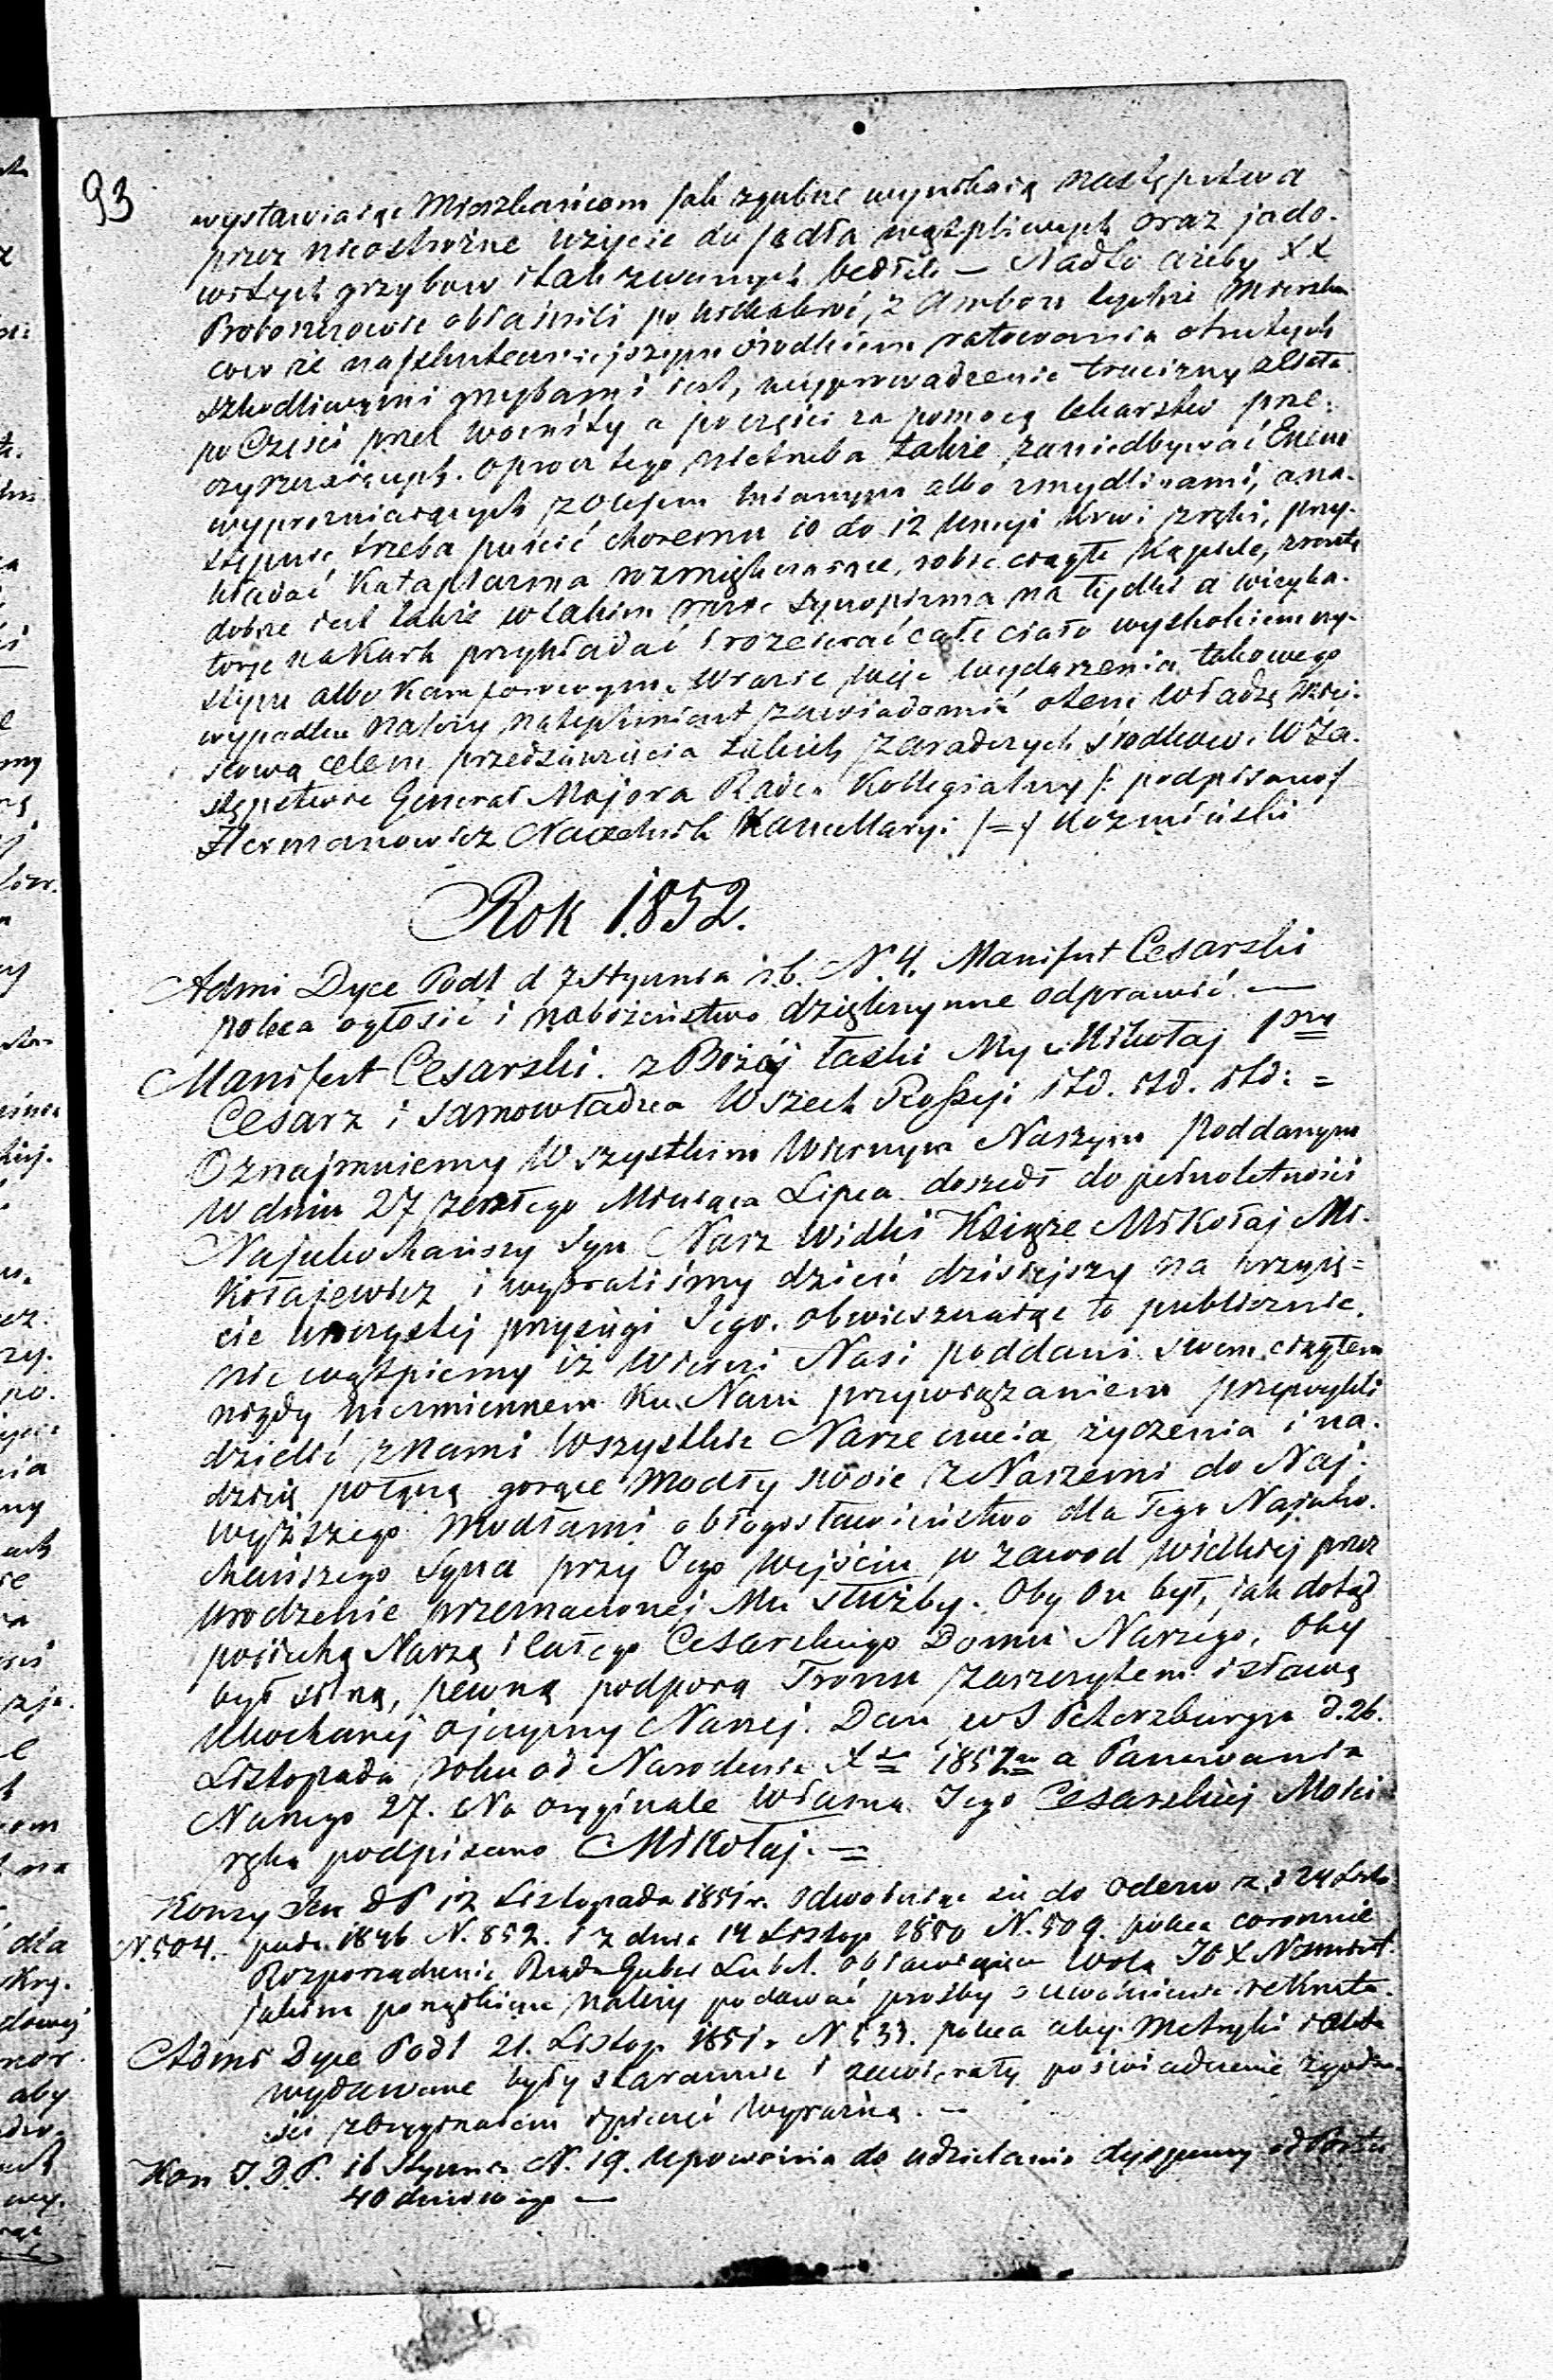 93
wystawiając Mieszkańcom jak zgubne wynikają następstwa
przez nieostrożne użycie do jadła wątpliwych oraz jado-
witych grzybow i tak zwanych bedłek — Nadto ażeby XX
Proboszczowie obiaśnili po kilkakroć, z Ambon tychże Mieszkań
cow że najskuteczniejszym środkiem ratowania otrutych
szkodliwemi grzybami iest, wyprowadzenie trucizny z Ciała
po Części przez Womity a po części za pomocą lekarstw prze-
czyszczaiących. oprocz tego nietrzeba także zaniedbywać Enem
wyprozniaiących z olejem lnianym albo z mydlinami, a na-
stępnie trzeba puścić choremu 10 do 12 Uncyi krwi z ręki, przy-
kładać Kataplazma rozmiękczaiące, robić ciągłe kąpiele, zresztą
dobrze iest także w takim razie Synopizma na łydki a wizyka-
torye na Kark przykładać i rozcierać całe ciało wyskokiem czy-
stym albo Kamforowym. W razie więc wydarzenia takowego
wypadku należy natychmiast zawiadomić o tem Władzę Miej-
scową celem przedsięwzięcia takich zaradczych środkow. W Za-
stępstwie Generał Majora Radca Kollegialny /: podpisano /
Hermanowicz Naczelnik Kancellaryi /=/ Kozmiński
Rok 1852.
Admi Dyce Podl d 7 Stycznia r.b. N. 4. Manifest Cesarski
poleca ogłosić i nabożeństwo dziękczynne odprawić. —
Manifest Cesarski. z Bożej łaski My Mikołaj 1szy
Cesarz i Samowładca Wszech Rossyi itd. itd. itd: =
Oznajmuiemy Wszystkim Wiernym Naszym Poddanym
W dniu 27 zeszłego Miesiąca Lipca doszedł do pełnoletności
Najukochańszy Syn Nasz Wielki Książe Mikołaj Mi-
kołajewicz i wybraliśmy dzień dzisiejszy na przyię-
cie uroczystej przysięgi Jego. obwieszczaiąc to publicznie.
nie wątpiemy iż Wierni Nasi poddani swem ciągłem
nigdy niezmiennem Ku Nam przywiązaniem przywykli
dzielić z Nami Wszystkie Nasze uczucia, życzenia i na-
dzieię połączą gorące Modły swoie z Naszemi do Naj-
wyższego Modłami o błogosławieństwo dla Tego Najuko-
chańszego Syna przy Jego wejściu w zawod wielkiej przez
Urodzenie przeznaczonej Mu służby. Oby On był, jak dotąd
pociechą Naszą i Całego Cesarskiego Domu Naszego, Oby
był silną, pewną podporą Tronu zaszczytem i sławą
Ukochanej Ojczyzny Naszej. Dan w S Petersburgu d. 26.
Listopada roku od Narodzenia Xsa 1852 a Panowania
Naszego 27. Na Oryginale Własną Jego Cesarskiej Mości
ręką podpisano Mikołaj. =
Konsy Jen D P 12 Listopada 1851 r. odwołuiąc się do Odezw z d 24 Listo
N. 504. pada 1846 N. 852. i z dnia 14 Listop 1850 N. 509. poleca coronnie
Rozporządzenie Rządu Guber Lubel. obiawiaiące Wolą JO X Namiest.
jakim porządkiem należy podawać prośby o uwolnienie rekruta.
Admi Dyce Podl 21. Listop. 1851 r N 533. poleca aby Metryki i akta
wydawane były starannie i zawierały poświadczenie zgodno-
ści z Oryginałem i pieczęć wyraźną. —
Kon J. D. P. 16 Stycznia N. 19. Upoważnia do udzielania dyspensy od Postu
40 dniowego —